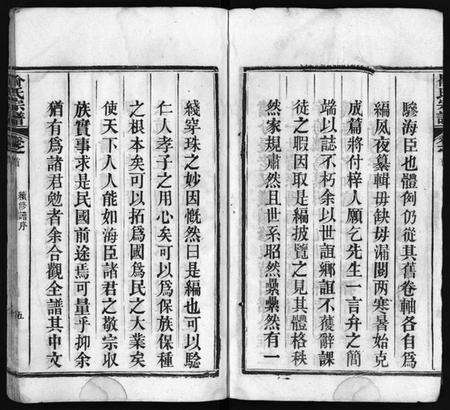 驂海臣也體例仍從其舊卷軸各自為
編夙夜纂輯毋缺毋漏閱兩寒暑始克
成篇將付梓人願乞先生一言弁之簡
端以誌不朽余以世誼鄉誼不獲辭課
徒之暇因取是編披覽之見其體格秩
然家規肅然且世系昭然纍纍然有一
綫穿珠之妙因慨然曰是編也可以驗
仁人孝子之用心矣可以為保族保種
之根本矣可以拓為國為民之大業矣
使天下人人能如海臣諸君之敬宗收
族實事求是民國前途焉可量乎抑余
猶有為諸君勉者余合觀全譜其中文
氏宗譜
續修譜序
五